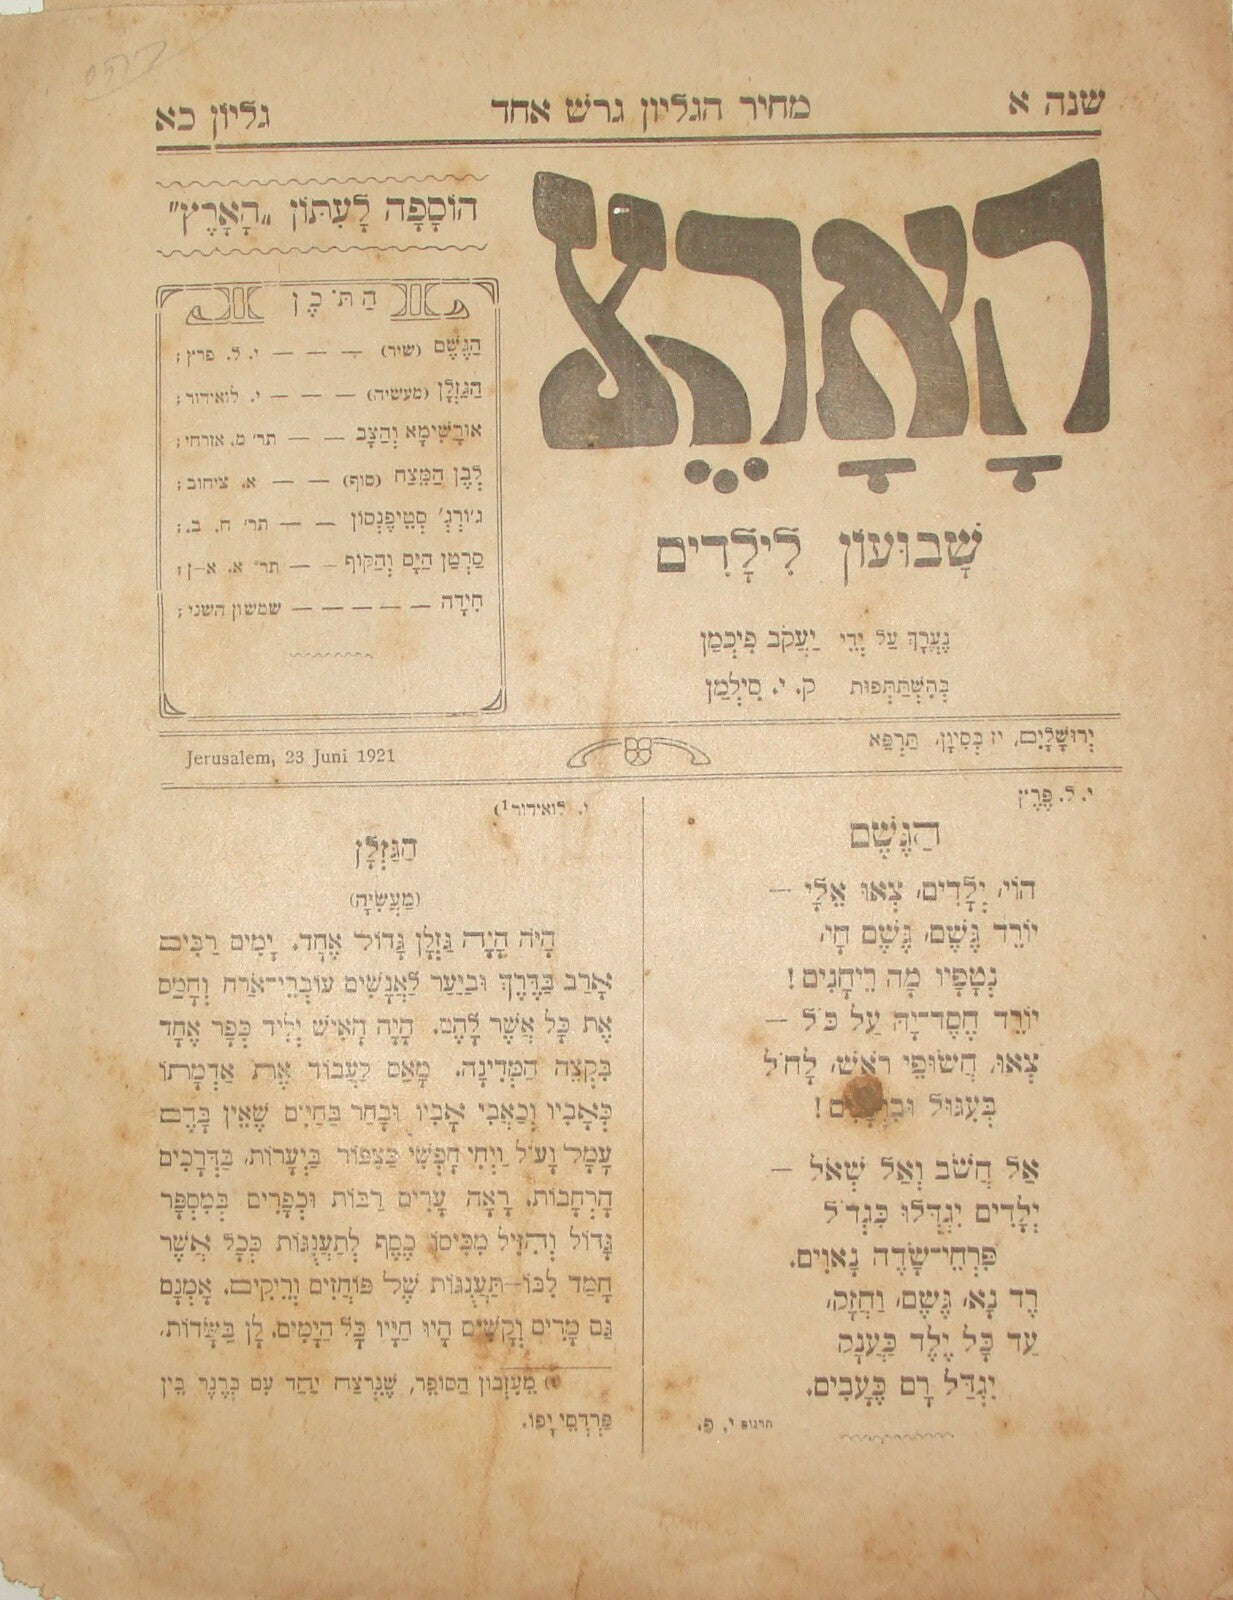 שנה א מחיר הגליון גרש אחד גליון כא
הָאָרֶץ
שָׁבוּעוֹן לִילָדִים
נֶעֱרָךְ עַל יְדֵי יַעֲקֹב פִיכְמַן
בְּהִשְׁתַּתְּפוּת ק. י. סִילְמַן
הוֹסָפָה לָעִתּוֹן „הָאָרֶץ”
הַתֹּכֶן
הַגֶּשֶׁם (שיר) — — — י. ל. פרץ;
הַגַּזְלָן (מעשיה) — — — י. לואידור;
אוּרָשִׁימָא וְהַצָּב — — תר׳ ס. אזרחי;
לְבֶן הַמֵּצַח (סוף) — — א. ציחוב;
ג׳וֹרְג׳ סְטִיפֶנְסוֹן — — תר׳ ח. ב.;
סַרְטַן הַיָּם וְהַקּוֹף — — תר׳ א. א–ן;
חִידָה — — — — — שמשון השני;
יְרוּשָׁלַיִם, יז בְּסִיוָן, תַּרְפָּא
Jerusalem, 23 Juni 1921
י. ל. פֶּרֶץ
הַגֶּשֶׁם
הוֹי, יְלָדִים, צְאוּ אֵלָי —
יוֹרֵד גֶּשֶׁם, גֶּשֶׁם חָי,
נְטָפָיו מָה רֵיחָנִים!
יוֹרֵד חֶסֶד־יָהּ עַל כֹּל —
צְאוּ, חֲשׂוּפֵי רֹאשׁ, לָחֹל
בְּעִגּוּל
אַל חֲשֹׁב וְאַל שְׁאֹל —
יְלָדִים יִגְדְּלוּ כִּגְדֹל
פִּרְחֵי־שָׂדֶה נָאוִים.
רֵד נָא, גֶּשֶׁם, וַחֲזָק,
עַד כָּל יֶלֶד כַּעֲנָק
יִגְדַּל רָם כֶּעָבִים.
תרגום י. פ.
י. לואידור¹)
הַגַּזְלָן
(מַעֲשִׂיָּה)
הָיֹה הָיָה גַּזְלָן גָּדוֹל אֶחָד. יָמִים רַבִּים
אָרַב בַּדֶּרֶךְ וּבַיַּעַר לַאֲנָשִׁים עוֹבְרֵי־אֹרַח וְחָמַס
אֶת כָּל אֲשֶׁר לָהֶם. הָיָה הָאִישׁ יְלִיד כְּפָר אֶחָד
בִּקְצֵה הַמְּדִינָה. מָאַס לַעֲבוֹד אֶת אַדְמָתוֹ
כְּאָבִיו וְכַאֲבִי אָבִיו וּבָחַר בַּחַיִּים שֶׁאֵין בָּהֶם
עָמָל וָעֹל וַיְחִי חָפְשִׁי כַּצִּפּוֹר בַּיְּעָרוֹת, בַּדְּרָכִים
הָרְחָבוֹת. רָאָה עָרִים רַבּוֹת וּכְפָרִים בְּמִסְפָּר
גָּדוֹל וְהִזִּיל מִכִּיסוֹ כֶּסֶף לְתַעֲנֻגּוֹת כְּכָל אֲשֶׁר
חָמַד לִבּוֹ–תַּעֲנֻגּוֹת שֶׁל פּוֹחֲזִים וְרֵיקִים. אָמְנָם
גַּם מָרִים וְקָשִׁים הָיוּ חַיָּיו כָּל הַיָּמִים. לָן בַּשָּׂדוֹת,
¹) מֵעִזְבוֹן הַסּוֹפֵר, שֶׁנִּרְצַח יַחַד עִם בְּרֶנֶר בֵּין
פַּרְדְּסֵי יָפוֹ.